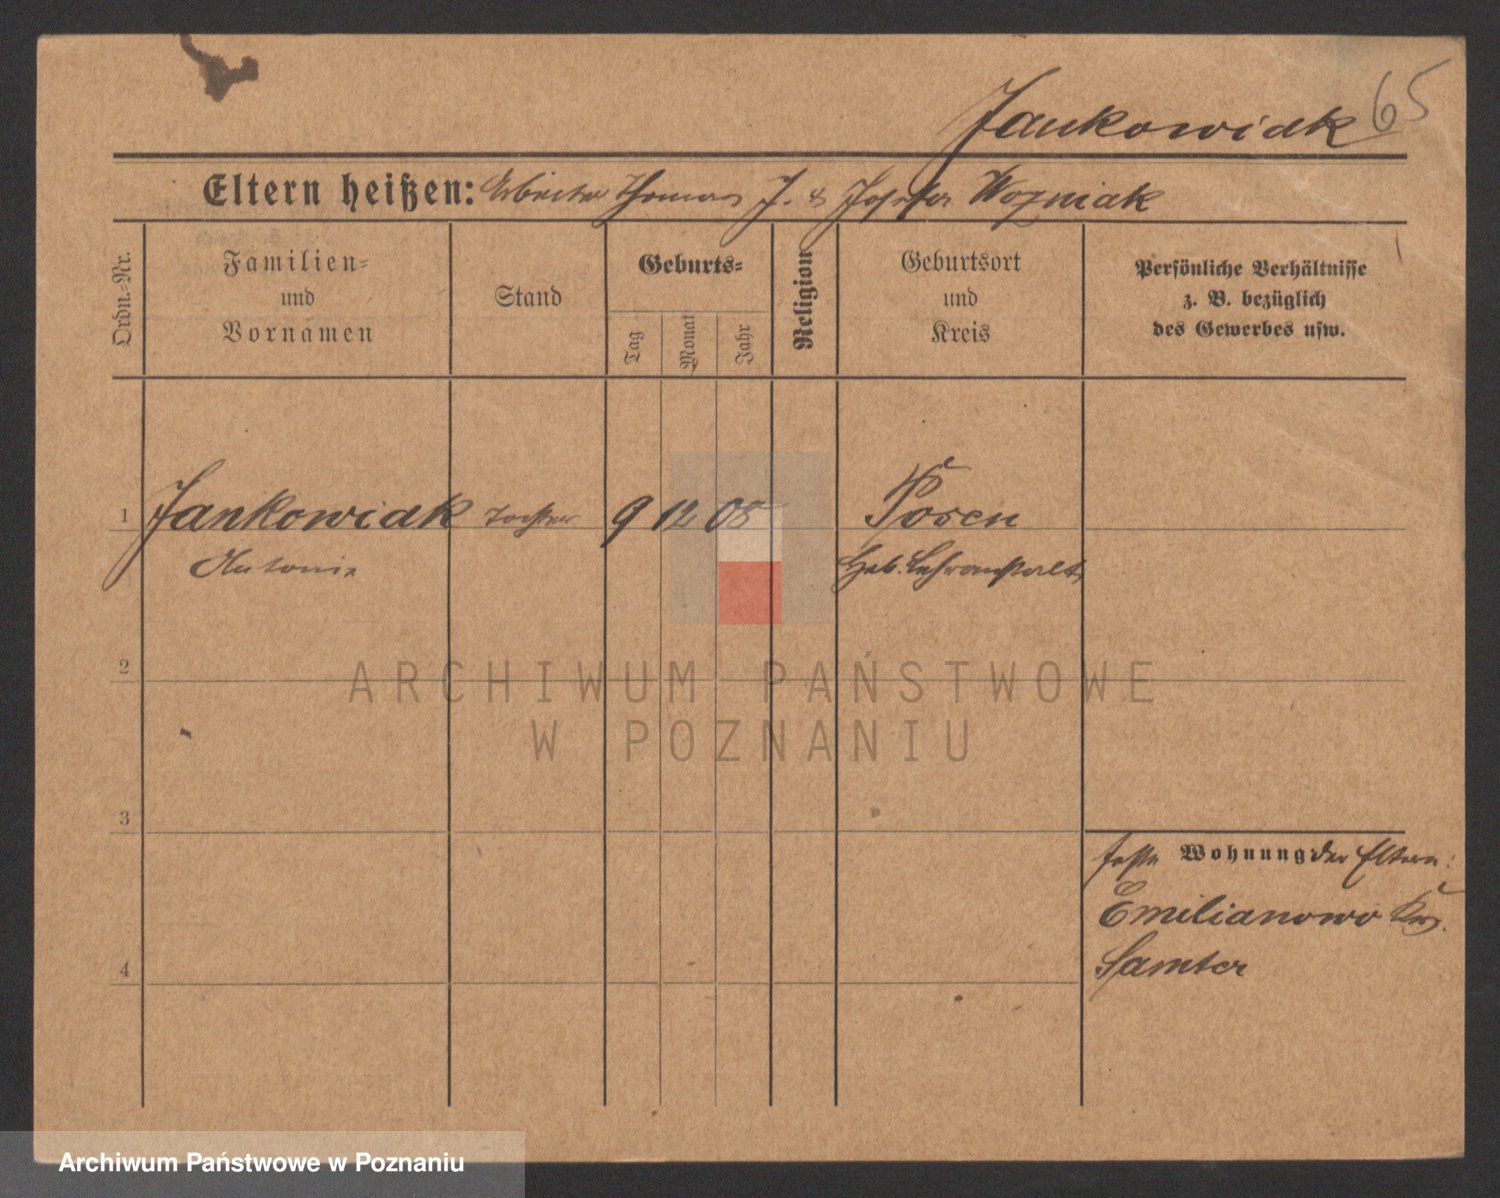 Jankowiak 65
Eltern heißen: Arbeiter Thomas J. & Josefa Wozniak
Ordn.-Nr.
Familien-
und
Vornamen
Stand
Geburts-
Tag
Monat
Jahr
Religion
Geburtsort
und
Kreis
Persönliche Verhältnisse
z. B. bezüglich
des Gewerbes usw.
1 Jankowiak Tochter 9 12 08 Posen
Antonie Heb. Lehranstalt
2
ARCHIWUM PAŃSTWOWE
W POZNANIU
3
Wohnung der Eltern:
Emilianowo Krs.
Samter
4
Archiwum Państwowe w Poznaniu